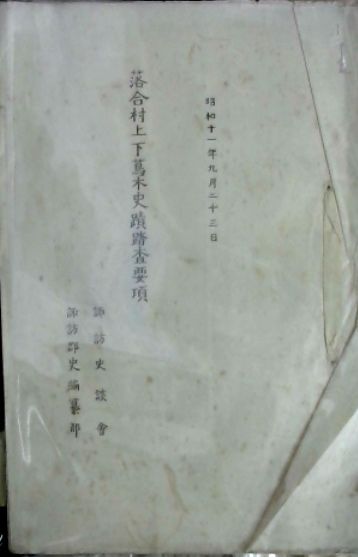 昭和十一年九月二十三日
落合村上下蔦木史蹟踏査要項
諏訪史談會
諏訪郡史編纂部